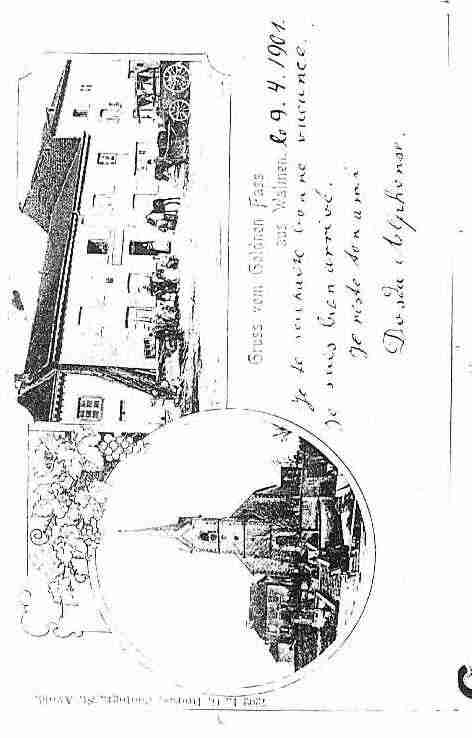 Gruss vom Goldnen Fass
aus Walmen. le 9. 4. 1901.
Je te souhaite bonne vacance.
Je suis bien arrivé.
Je reste ton ami
Alphonse.
St. Avold.